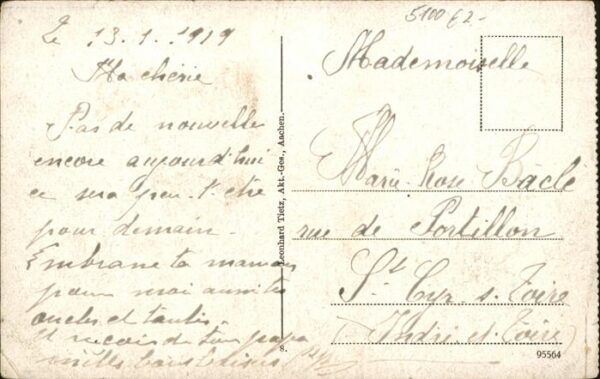 Le 13.1.1919
Ma chérie
Pas de nouvelle
encore aujourd'hui
ce sera peu-t-etre
pour demain.
Embrasse ta maman
pour moi
oncles et tantes.
et recois de ton papa
mille bons
Leonhard Tietz, Akt.-Ges., Aachen.
8.
5100 62-
Mademoiselle
Marie Rose Bâclé
rue de Portillon
St Cyr s. Loire
Indre et Loire
95564